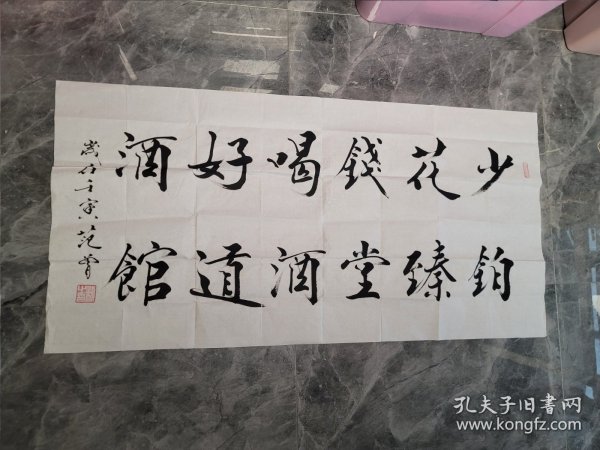 少花錢喝好酒
鈞臻堂酒道館
歲在壬寅范曾
孔夫子旧書网
www.kongfz.com